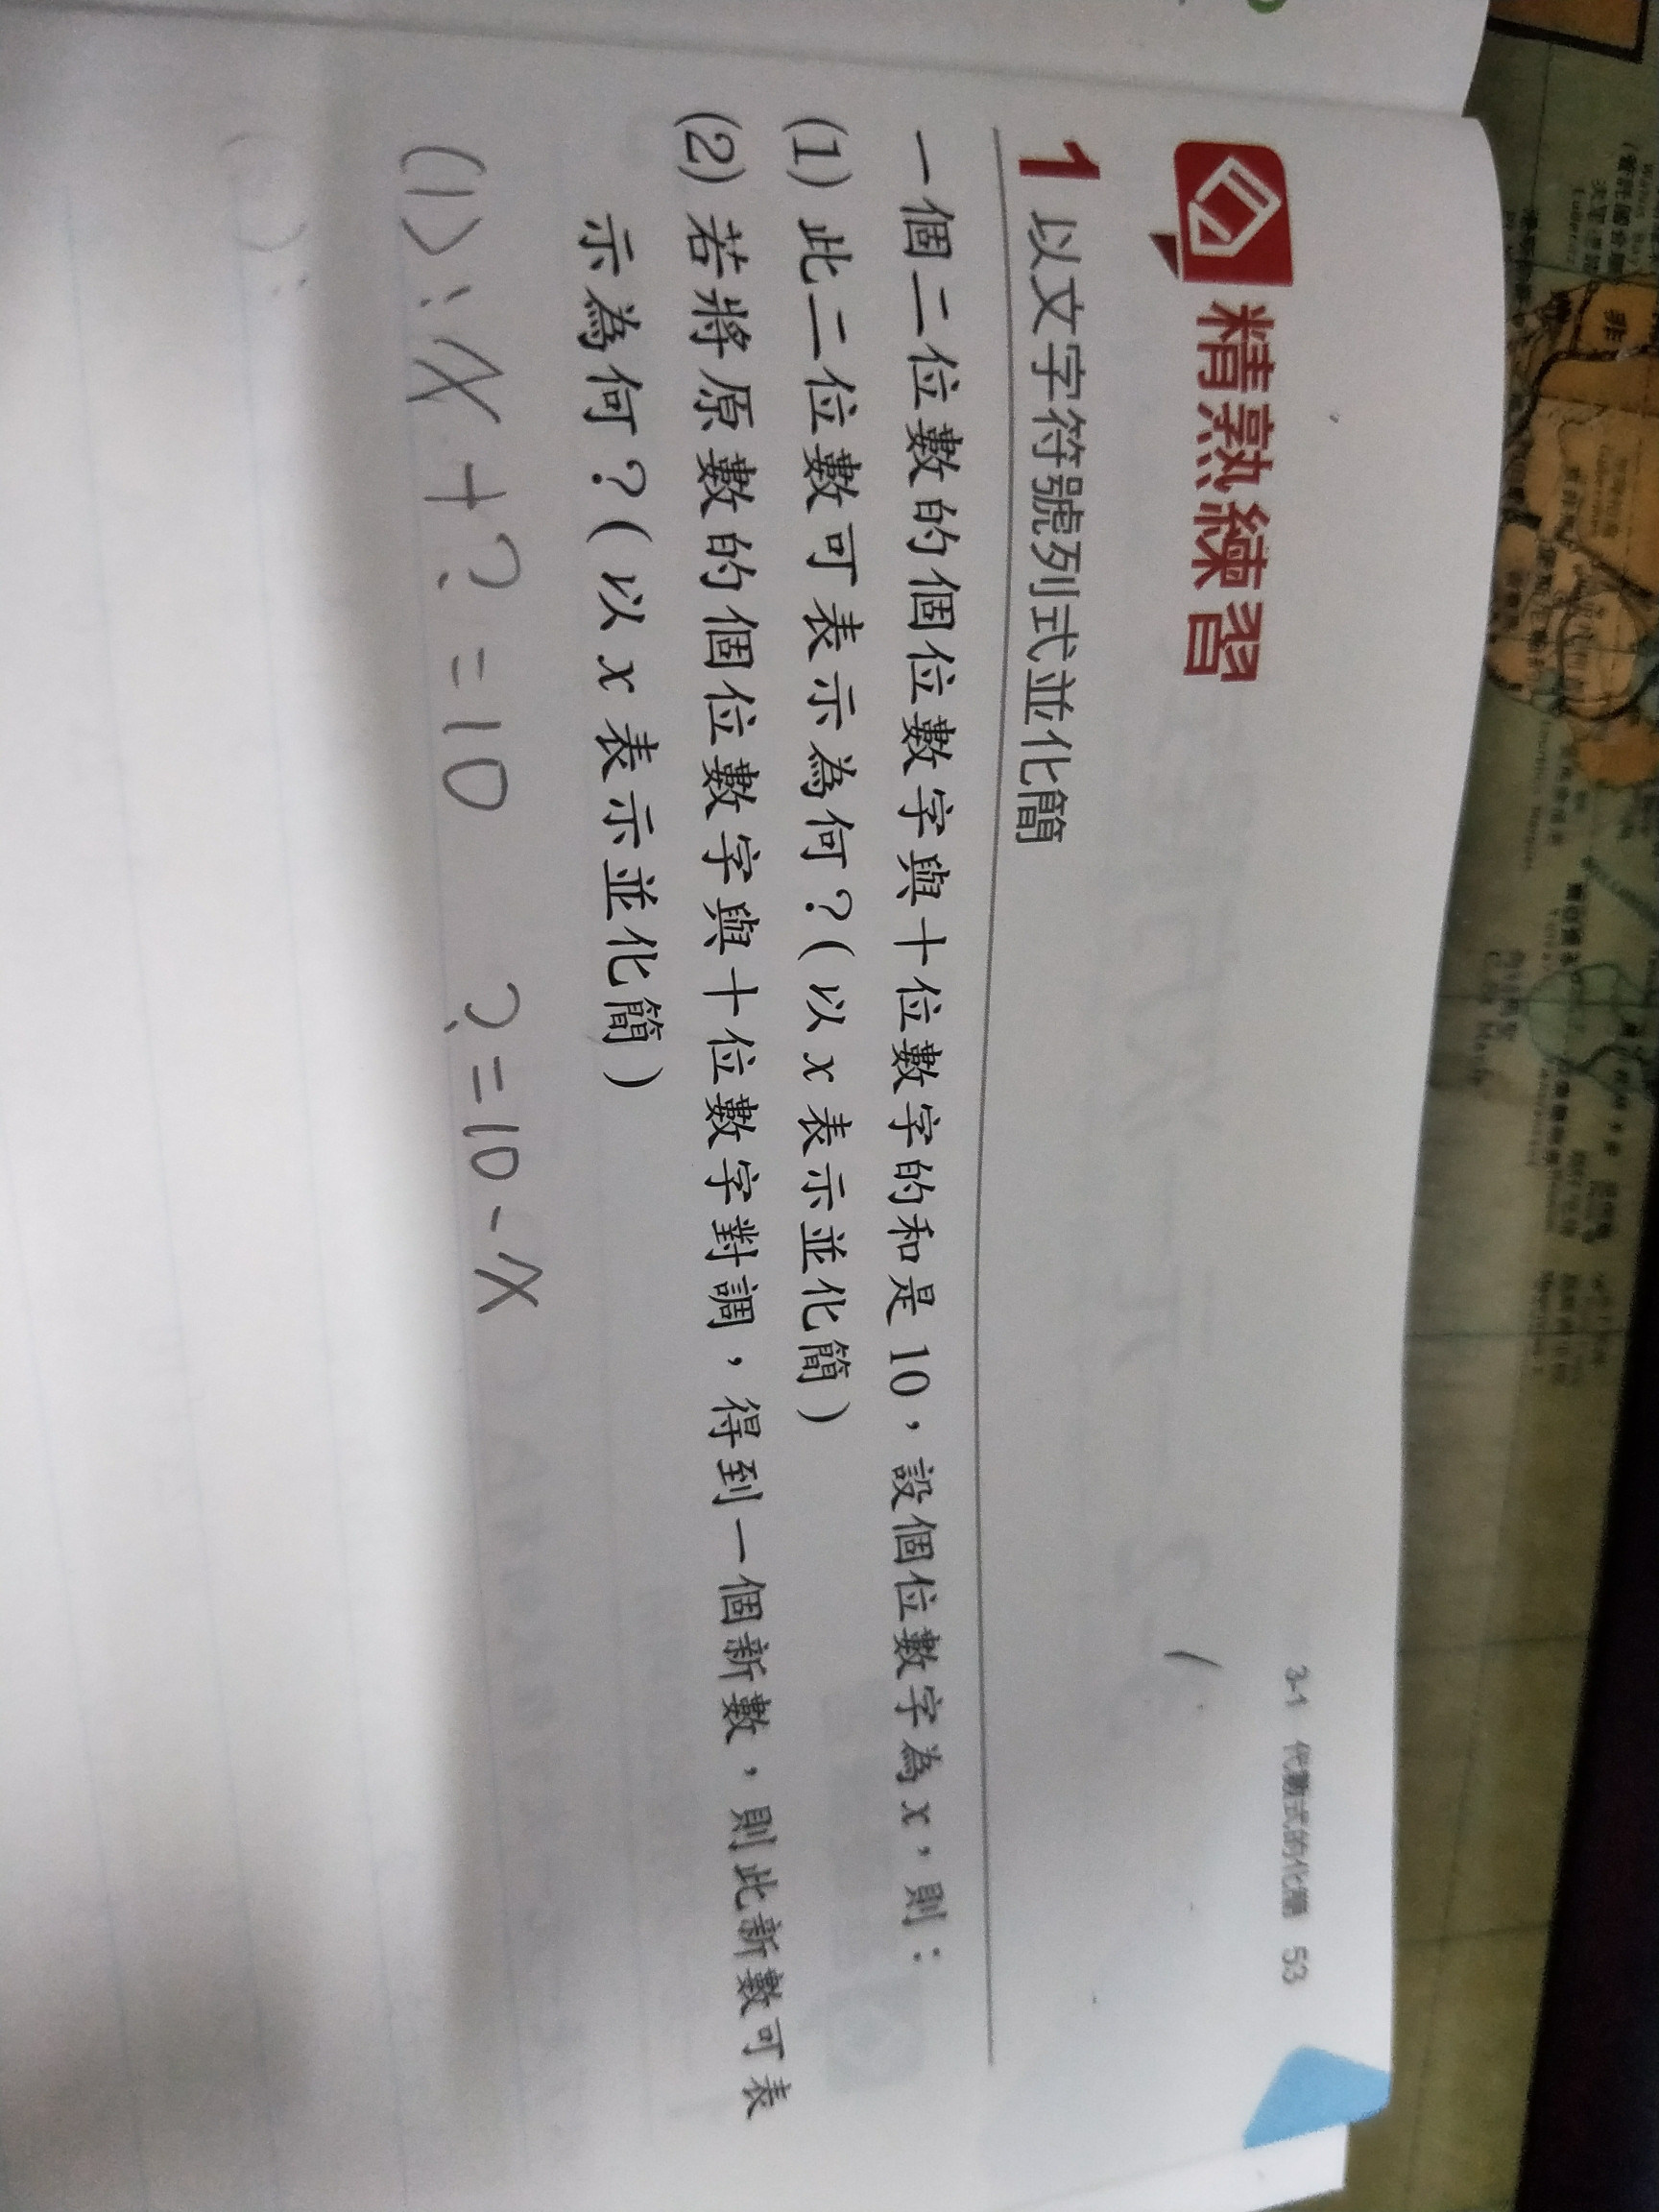 3-1 代數式的化簡 53
精熟練習
1 以文字符號列式並化簡
一個二位數的個位數字與十位數字的和是10，設個位數字為x，則：
(1) 此二位數可表示為何？(以x表示並化簡)
(2) 若將原數的個位數字與十位數字對調，得到一個新數，則此新數可表
示為何？(以x表示並化簡)
(1): x + ? = 10 ? = 10 - x